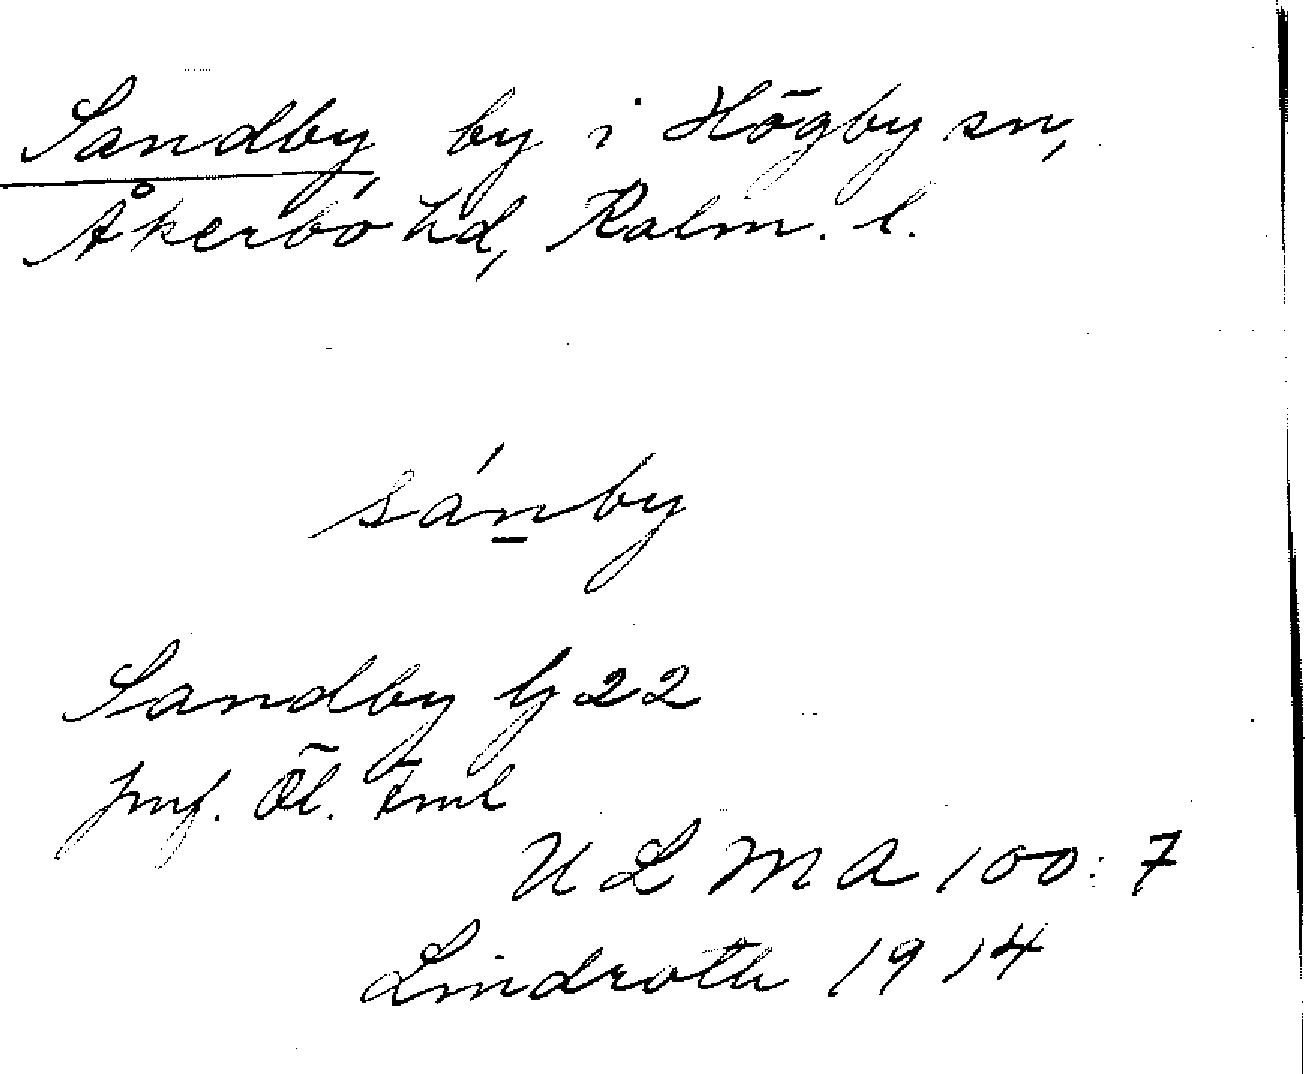 Sandby, by i Högby sn,
Åkerbo hd, Kalm. l.
sánby
Sandby G 22
Jmf. Öl. fml
U L M A 100:7
Lindroth 1914